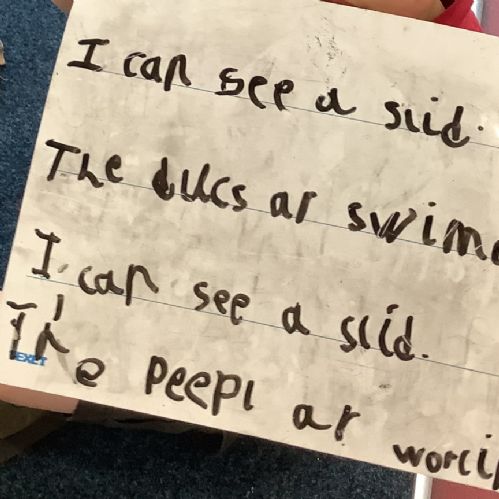 I can see a sliid.
The ducs ar swim
I can see a sliid.
The peepl ar worci